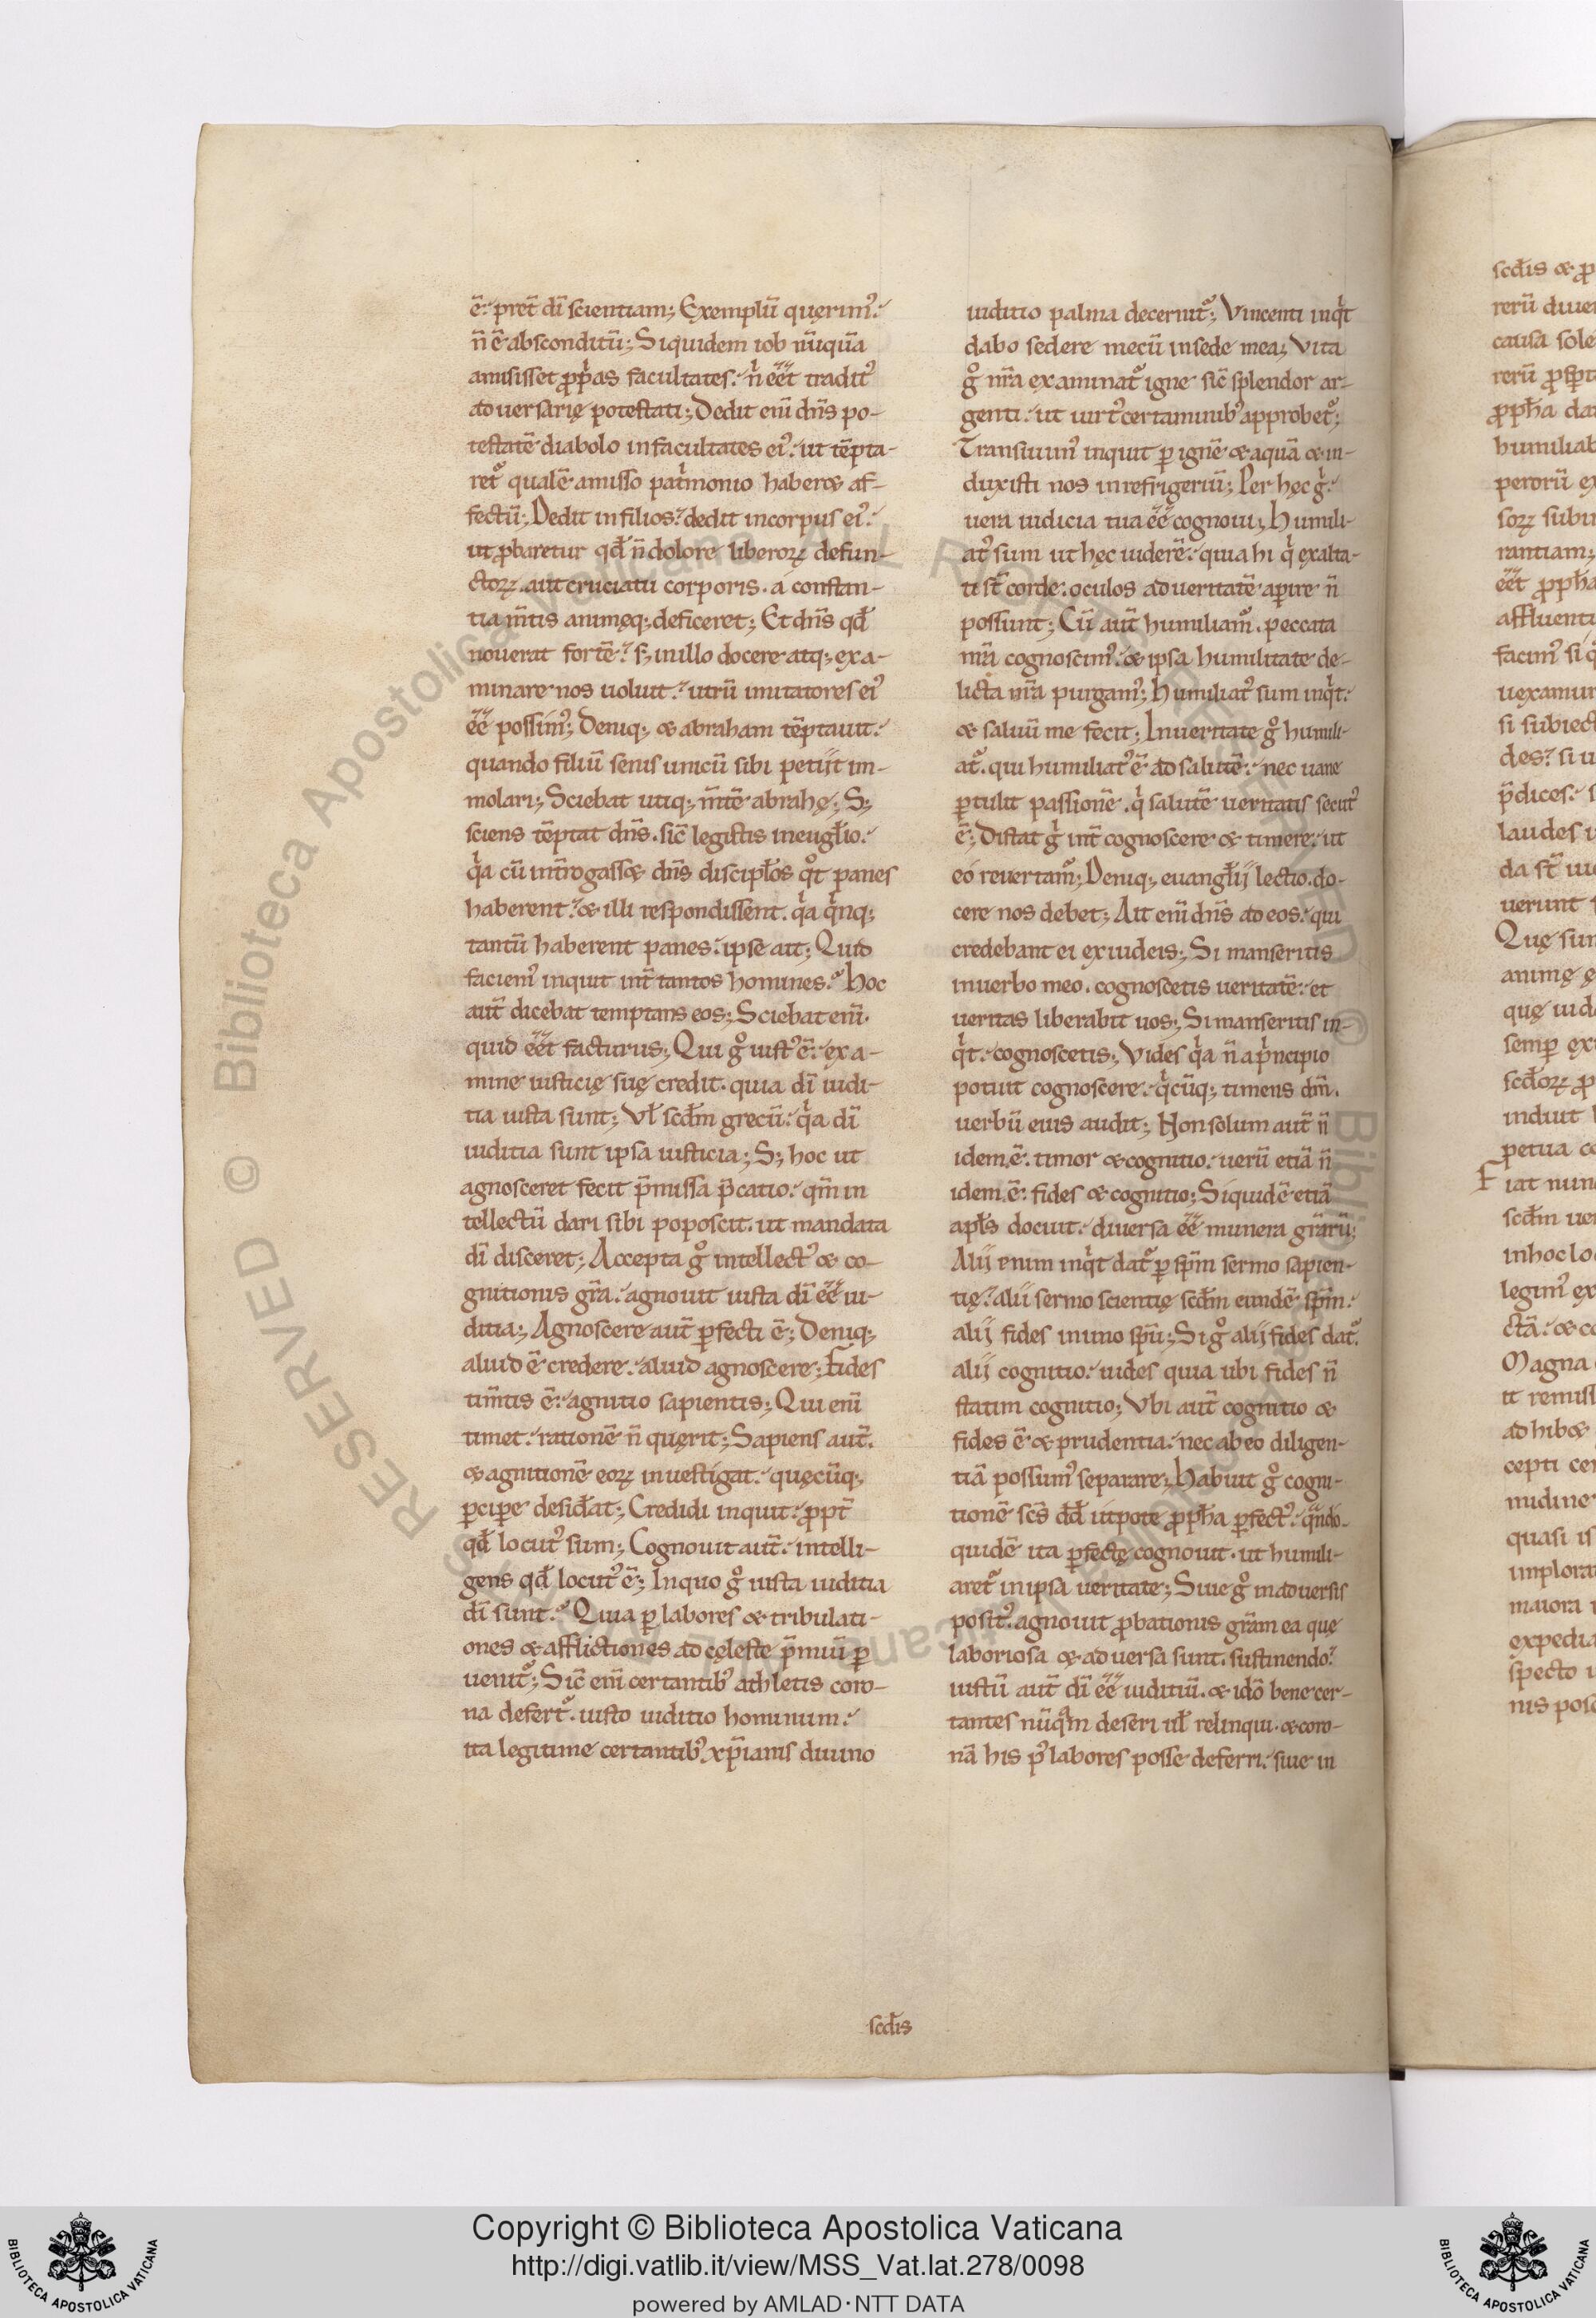 ē. pret̄ dī scientiam; Exemplū quęrim᷒.
n̄ ē absconditū; Siquidem iob nūquā
amisisset pp̱as facultates. n̄ eēt tradit᷒
aduersarię potestati; Dedit eni᷒ dn̄s po-
testatē diabolo in facultates ei᷒. ut tēpta-
ret᷒ qualē amisso patͥmonio haberet af-
fectū; Dedit in filios. dedit in corpus ei᷒.
ut ꝓbaretur qđ n̄ dolore liberoꝝ defun-
ctoꝝ. aut cruciatu corporis. á constan-
tia m̄tis animęq; deficeret; Et dn̄s qđ
nouerat fortē. s; in illo docere atq; exa-
minare nos uoluit. utrū imitatores ei᷒
eē possim᷒; Deniq; & abraham tēptauit.
quando filiū senis unicū sibi petijt im-
molari; Sciebat utiq; m̄tē abrahę; S;
sciens tēptat dn̄s. sic̄ legistis in eugl̄io.
qͥa cū int̄rogasset dn̄s discipl̄os qͦt panes
haberent. & illi respondissent. qͥa qͥnq;
tantū haberent panes. ipse ait; Quid
faciem᷒ inquit int̄ tantos homines. Hoc
aut̄ dicebat temptans eos; Sciebat eni᷒.
quid eēt facturus; Qui gͦ iust᷒ ē. exa-
mine iusticię suę credit. quia dī iudi-
tia iusta sunt; Vl̄ scđm grecū. qͥa dī
iuditia sunt ipsa iusticia; S; hoc ut
agnosceret fecit p̄missa p̄catio. qm̄ in
tellectū dari sibi poposcit. ut mandata
dī disceret; Accepta gͦ intellect᷒ & co-
gnitionis gr̄a. agnouit iusta dī eē iu-
ditia; Agnoscere aut̄ ꝑfecti ē; Deniq;
aliud ē credere. aliud agnoscere; Fides
tim̄tis ē. agnitio sapientis; Qui eni᷒
timet. rationē n̄ quęrit; Sapiens aut̄.
& agnitionē eoꝝ inuestigat. quęcūq;
ꝑcipe desiđat; Credidi inquit. ꝓpt̄
qđ locut᷒ sum; Cognouit aut̄. intelli-
gens qđ locut᷒ ē; In quo gͦ iusta iuditia
dī sunt. Quia ꝑ labores & tribulati-
ones & afflictiones ad cęleste p̄miū ꝑ
uenit᷒; Sic̄ eni᷒ certantib᷒ athletis coro-
na defert᷒. iusto iuditio hominum.
ita legitime certantib᷒ xp̄ianis diuino
iuditio palma decernit᷒; Vincenti inqͥt
dabo sedere mecū in sede mea; Vita
gͦ nr̄a examinat᷒ igne sic̄ splendor ar-
genti. ut uirt᷒ certaminib᷒ approbet᷒;
Transiuim᷒ inquit ꝑ ignē & aquā & in-
duxisti nos in refrigeriū; Per hęc gͥ.
uera iudicia tua eē cognoui; Humili-
at᷒ sum ut hęc uiderē. quia hi qͥ exalta-
ti st̄ corde. oculos ad ueritatē apire n̄
possunt; Cū aut̄ humiliam᷒. peccata
nr̄a cognoscim᷒. & ipsa humilitate de-
licta nr̄a purgam᷒; Humiliat᷒ sum inqͥt.
& saluū me fecit; In ueritate gͦ humili-
at᷒. qui humiliat᷒ ē ad salutē. nec uane
ꝑtulit passionē. qͥ salutē ueritatis secut᷒
ē; Distat gͥ int̄ cognoscere & timere. ut
eó reuertam᷒; Deniq; euangl̄ij lectio. do-
cere nos debet; Ait eni᷒ dn̄s ad eos. qui
credebant ei ex iudeis; Si manseritis
in uerbo meo. cognoscetis ueritatē. et
ueritas liberabit uos; Si manseritis in-
qͥt. cognoscetis; Vides qͥa n̄ a pͥncipio
potuit cognoscere. qͥcūq; timens dm̄.
uerbū eius audit; Non solum aut̄ n̄
idem. ē. timor & cognitio. uerū etiā n̄
idem. ē. fides & cognitio; Siquidē etiā
apl̄s docuit. diuersa eē munera gr̄arū;
Alij enim inqͥt dat᷒ ꝑ sp̄m sermo sapien-
tię. alii sermo scientię scđm eundē sp̄m.
alij fides in uno sp̄u; Si gͦ alij fides dat᷒.
alij cognitio. uides quia ubi fides n̄
statim cognitio; Vbi aut̄ cognitio &
fides ē & prudentia. nec ab eo diligen-
tiā possum᷒ separare; Habuit gͦ cogni-
tionē sc̄s dđ utpote ꝓph̄a ꝑfect᷒. qͣndo-
quidē ita ꝑfectę cognouit. ut humili-
aret᷒ in ipsa ueritate; Siue gͦ in aduersis
posit᷒. agnouit ꝓbationis gr̄am ea quę
laboriosa & aduersa sunt. sustinendo.
iustū aut̄ dī eē iuditiū. & idō bene cer-
tantes nūqͣm deseri ul̄ relinqui. & coro-
nā his p᷒ labores posse deferri. siue in
scđis
scđis & ꝓ
rerū diuer
causā sole
ꝓph̄a da
humiliab
perorū ex
soꝝ subiu
rantiam;
eēt ꝓph̄a
affluenti
facim᷒ si q
uexamur
si subiect
des. si u
p̄dices. s
laudes i
da st̄ iu
uerunt
Quę sun
animę
quę iud
semp̱ ex
scđoꝝ ꝓ
induit
petua co
Fiat nun
scđm ue
in hoc lo
legim᷒ ex
ctā. & c
Magna
it remiss
adhib&
cepti cer
nudine
quasi is
implora
maiora
expedia
specto u
nis pos
Copyright © Biblioteca Apostolica Vaticana
http://digi.vatlib.it/view/MSS_Vat.lat.278/0098
powered by AMLAD·NTT DATA
BIBLIOTECA APOSTOLICA VATICANA
BIBLIOTECA APOSTOLICA VATICANA